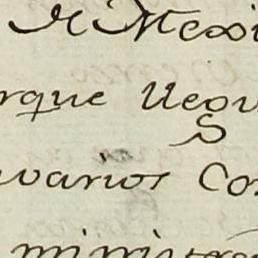 de Mexi
rque Uegu
varios Con
ministra